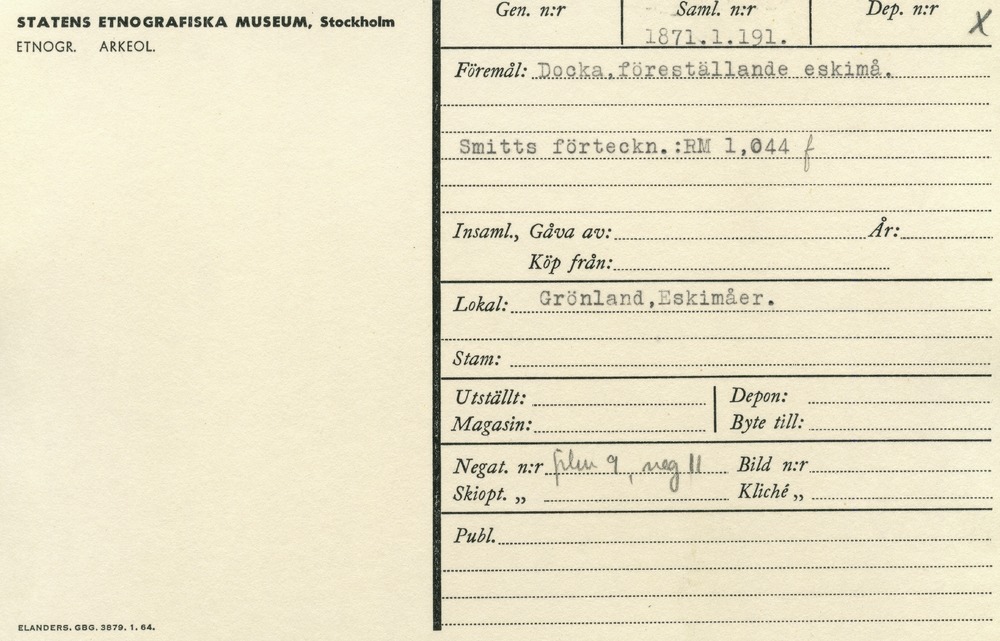 STATENS ETNOGRAFISKA MUSEUM, Stockholm
ETNOGR. ARKEOL.
Gen. n:r Saml. n:r Dep. n:r X
1871.1.191.
Föremål: Docka,föreställande eskimå.
Smitts förteckn.:RM 1,044 f
Insaml., Gåva av: År:
Köp från:
Lokal: Grönland,Eskimåer.
Stam:
Utställt: Depon:
Magasin: Byte till:
Negat. n:r film 9, neg 11 Bild n:r
Skiopt. „ Kliché „
Publ.
ELANDERS. GBG. 3879. 1. 64.